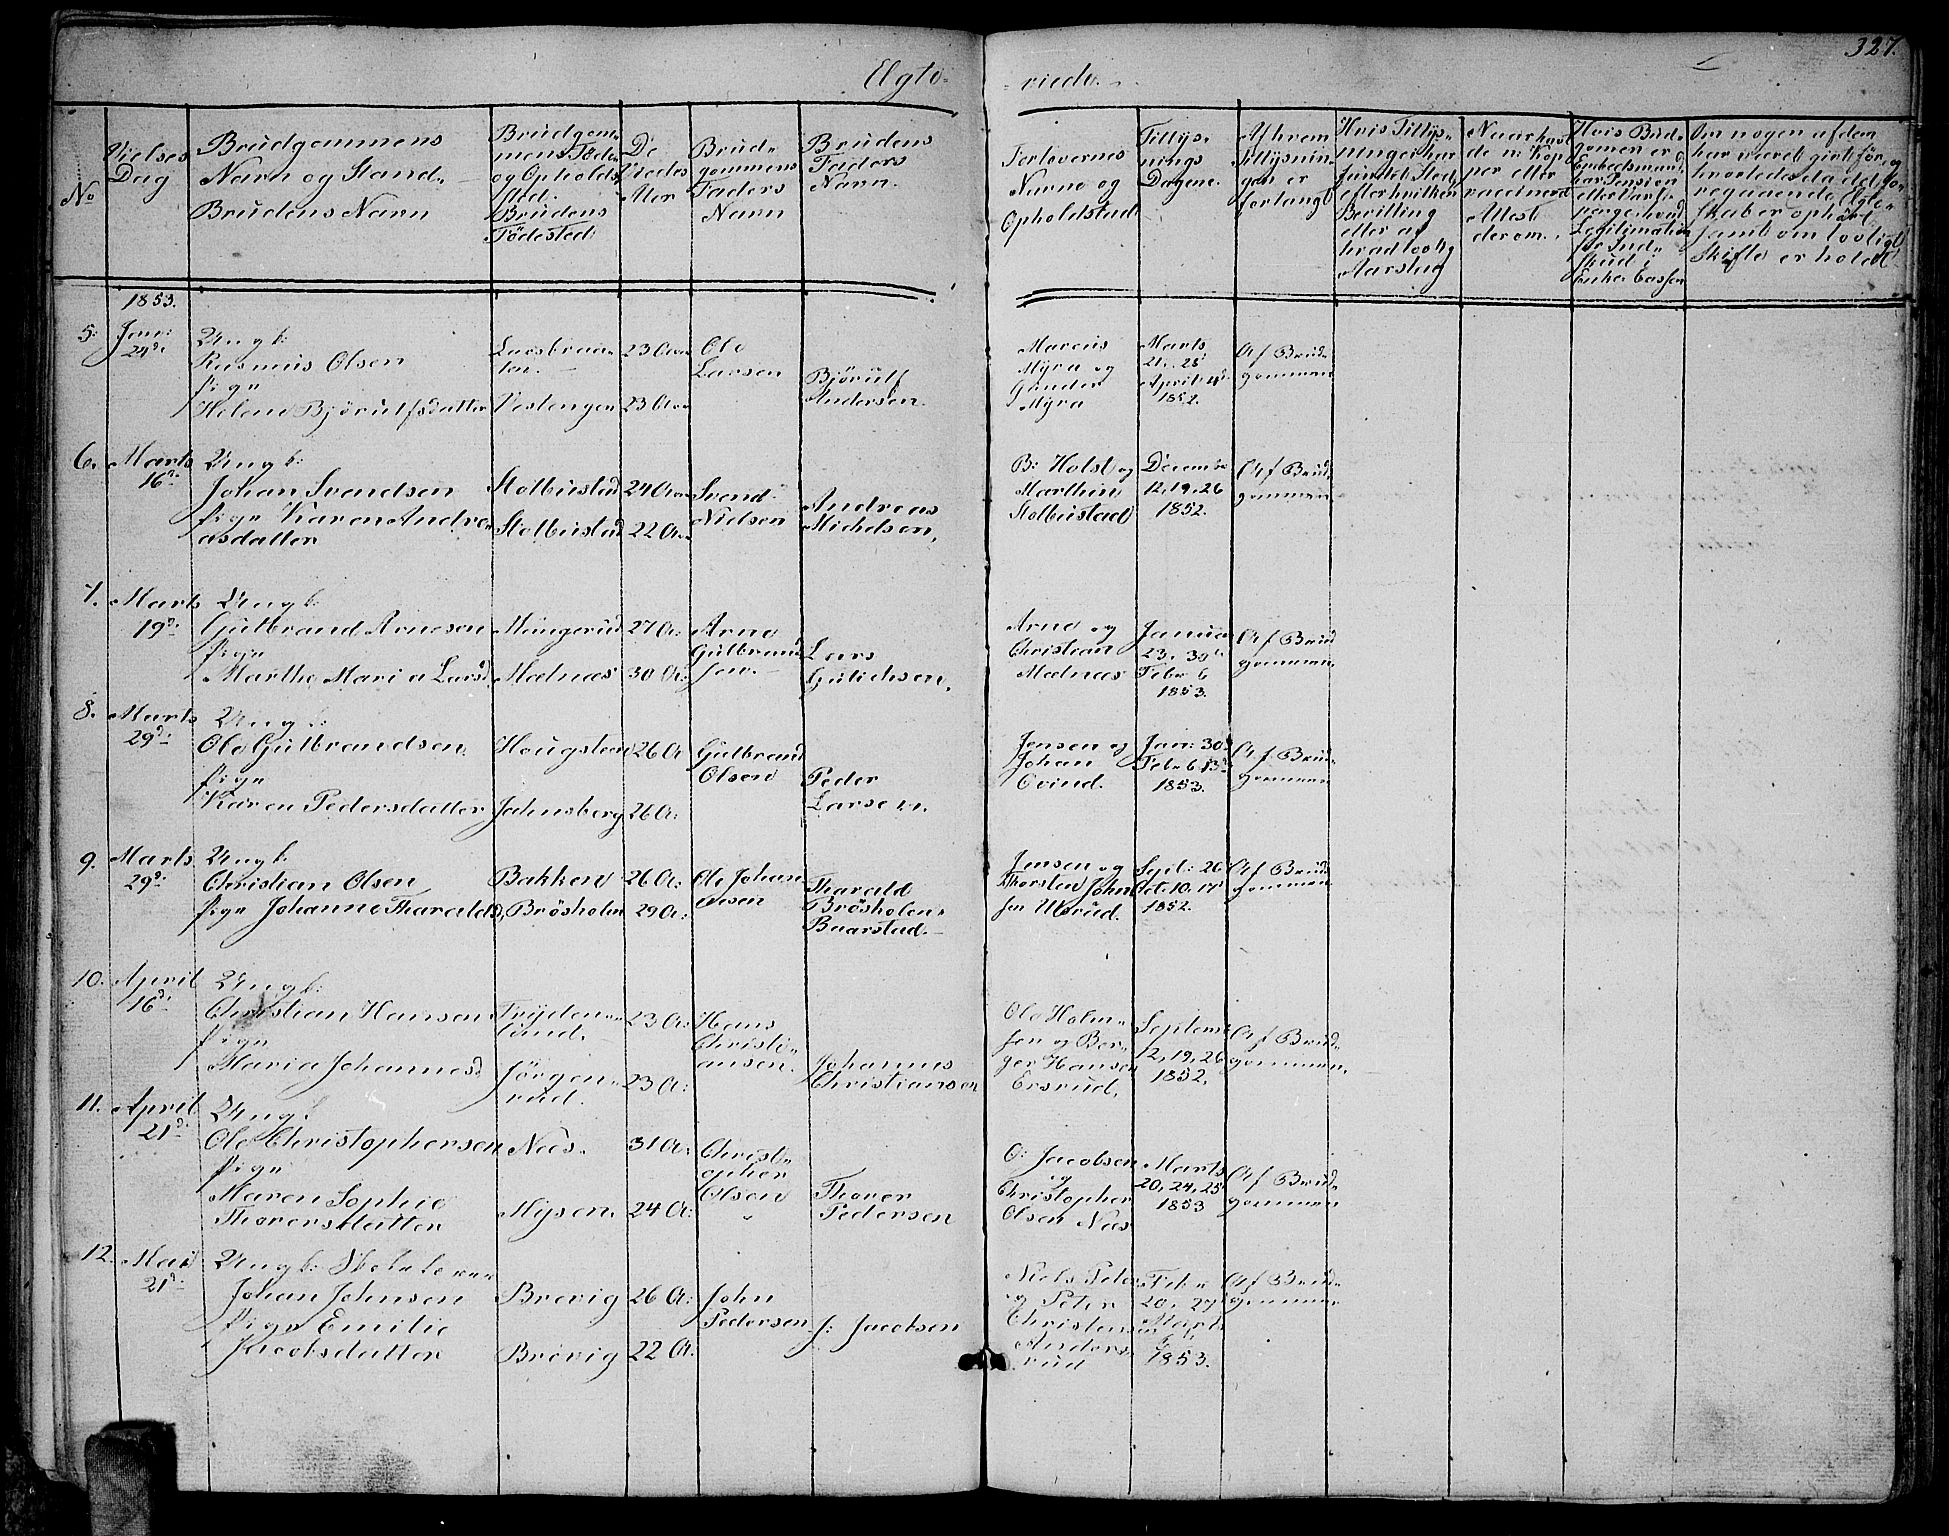 327.
Egte-
-viede.
No
Vielses
Dag
Brudgommens
Navn og Stand
Brudens Navn
Brudgom-
mens Föde
og Opholds
sted.
Brudens
Födested
De
Viedes
Alder
Brud-
gommens
Faders
Navn
Brudens
Faders
Navn.
Forlovernes
Navne og
Opholdsted
Tillys-
nings
Dagene.
Af hvem
Tillysnin-
gen er
forlangt
Hvis Tillys-
ninger har
fundet Sted,
efter hvilken
Bevilling
eller af
hvad lovlig
Aarsag
Naar havt
de n: Kop-
per eller
vaccineret
Attest
derom.
Hvis Brud-
gomen er
Embedsmand,
har Pension
eller
Legitimation
for Ind-
skud i
Enke Cassen
Om nogen af dem
har været gift för, og
hvorledes da det fo-
regaaende Ægte-
skab er ophört
samt om lovligt
Skifte er holdt
1853.
5: Jan: 24de
Ungk:
Rasmus Olsen
pige
Helene Björulfsdatter
Vestengen
23 Aar
23 Aar
Ole
Larsen
Björulf
Andersen.
Marcus
Myra og
Gunder
Myra
Marts
21. 28
April 4de
1852.
Af Brud-
gommen
6. Marts 16de
Ungk:
Johan Svendsen
pige Karen Andre
asdatter
Stolbustad
Stolbustad
24 Aar
22 Aar
Svend
Nielsen
Andreas
Michelsen,
B: Holst og
Marthin
Stolbustad
Decembr
12, 19, 26
1852.
Af Brud-
gommen
7. Marts 19de
Ungk:
Gulbrand Arnesen
pige
Marthe Maria Larsd.
Mungerud
Mælnæs
27 A:
30 A:
Arne
Gulbrand
sen.
Lars
Gulichsen,
Arne og
Christian
Mælnæs
Janua
23. 30te
Febr 6
1853.
Af Brud
gommen
8. Marts 29de
Ungk:
Ole Gulbrandsen,
pige
Karen Pedersdatter
Hougsteen
Jahnsberg
26 A
26 A:
Gulbrand
Olsen
Peder
Larsen.
Jensen og
Johan
Ovind.
Jan: 30
Febr 6. 13de
1853.
Af Brud-
gommen
9. Marts 29de
Ungk:
Christian Olsen
pige Johanne Tharalds,
Bakken
Brösholm
26 A:
29 A:
Ole Johan
nesen
Tharald
Brösholen
Baarstad.
Jensen og
Thorsten John
sen Ulsrud.
Sept: 26
Oct. 10. 17
1852.
Af Brud
gommen
10. April 16de
Ungk:
Christian Hansen
pige
Maria Johannesd
Fryden-
lund.
Jörgen-
rud.
23 A:
23 A:
Hans
Christi-
ansen.
Johannes
Christiansen
Ole Holm-
sen og Ber-
ger Hansen
Ersrud,
Septemb
12, 19, 26
1852.
Af Brud-
gommen.
11. April 21de
Ungk
Ole Christophersen
pige
Maren Sophie
Thorersdatter
Næs.
Mysen,
31 A:
24 A:
Christ-
opher
Olsen
Thorer
Pedersen
O: Jacobsen
og
Christopher
Olsen Næs
Marts
20, 24, 25
1853
Af Brud-
gommen
12. Mai 21de
Ungk:
Johan Johnsen
pige Emilie
Jacobsdatter
Brevig
Brevig
26 A:
22 A.
John
Pedersen
J: Jacobsen
Niels Peter
og Peter
Christensen
Anders-
rud
Febr
20. 27
Marts
1853.
Af Brud-
gommen